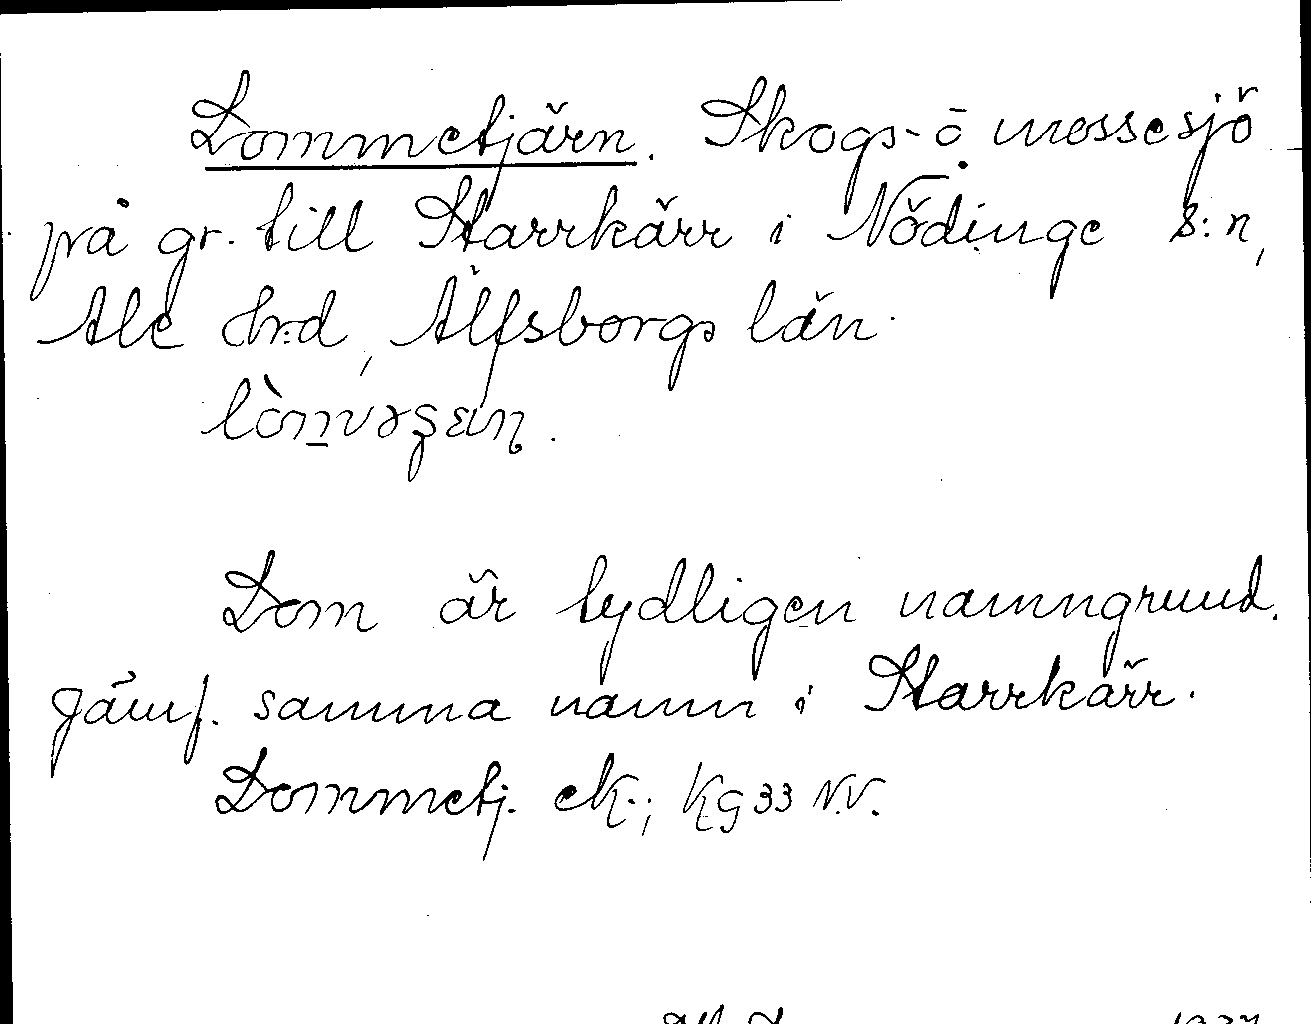 Lommetjärn. Skogs- o mossesjö
på gr. till Starrkärr i Nödinge s:n,
Ale hrd, Älfsborgs län.
Lom är tydligen namngrund.
Jämf. samma namn i Starrkärr.
Lommetj. ek.; Kg 33 N.V.